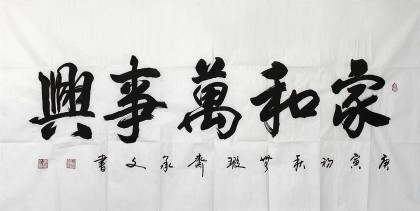 家和萬事興
庚寅初秋無瑕齋承文書